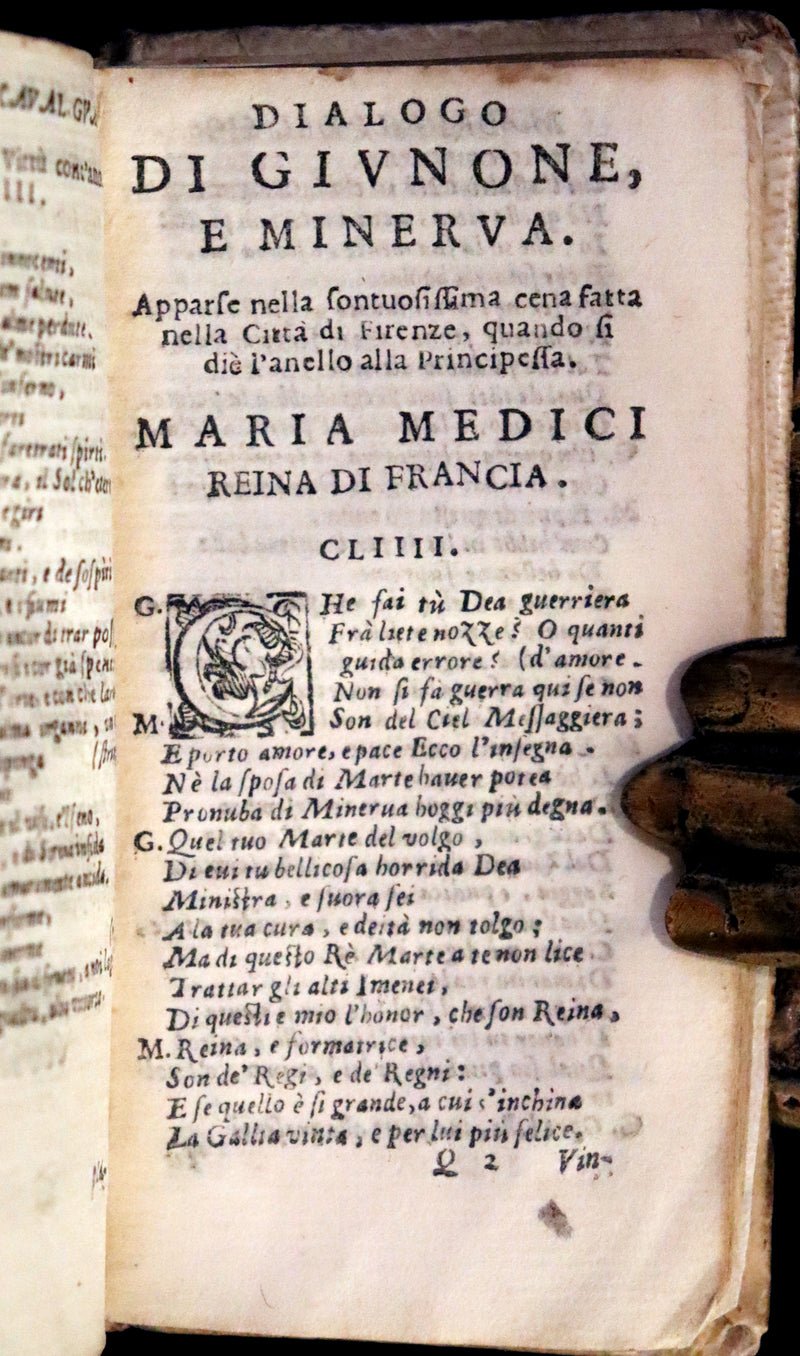 DIALOGO
DI GIVNONE,
E MINERVA.
Apparſe nella ſontuoſiſſima cena fatta
nella Città di Firenze, quando ſi
diè l'anello alla Principeſſa.
MARIA MEDICI
REINA DI FRANCIA.
CLIIII.
G. CHe fai tù Dea guerriera
Frà liete nozze? O quanti
guida errore? (d'amore.
Non ſi fà guerra qui ſe non
M. Son del Ciel Meſſaggiera;
E porto amore, e pace Ecco l'inſegna.
Nè la ſpoſa di Marte hauer potea
Pronuba di Minerua hoggi più degna.
G. Quel tuo Marte del volgo,
Di cui tu bellicoſa horrida Dea
Miniſtra, e ſuora ſei
A la tua cura, e deità non tolgo;
Ma di queſto Rè Marte a te non lice
Trattar gli alti Imenei,
Di queſti e mio l'honor, che ſon Reina,
M. Reina, e formatrice,
Son de' Regi, e de' Regni:
E ſe quello è ſi grande, a cui s'inchina
La Gallia vinta, e per lui più felice.
Q 2 Vin-